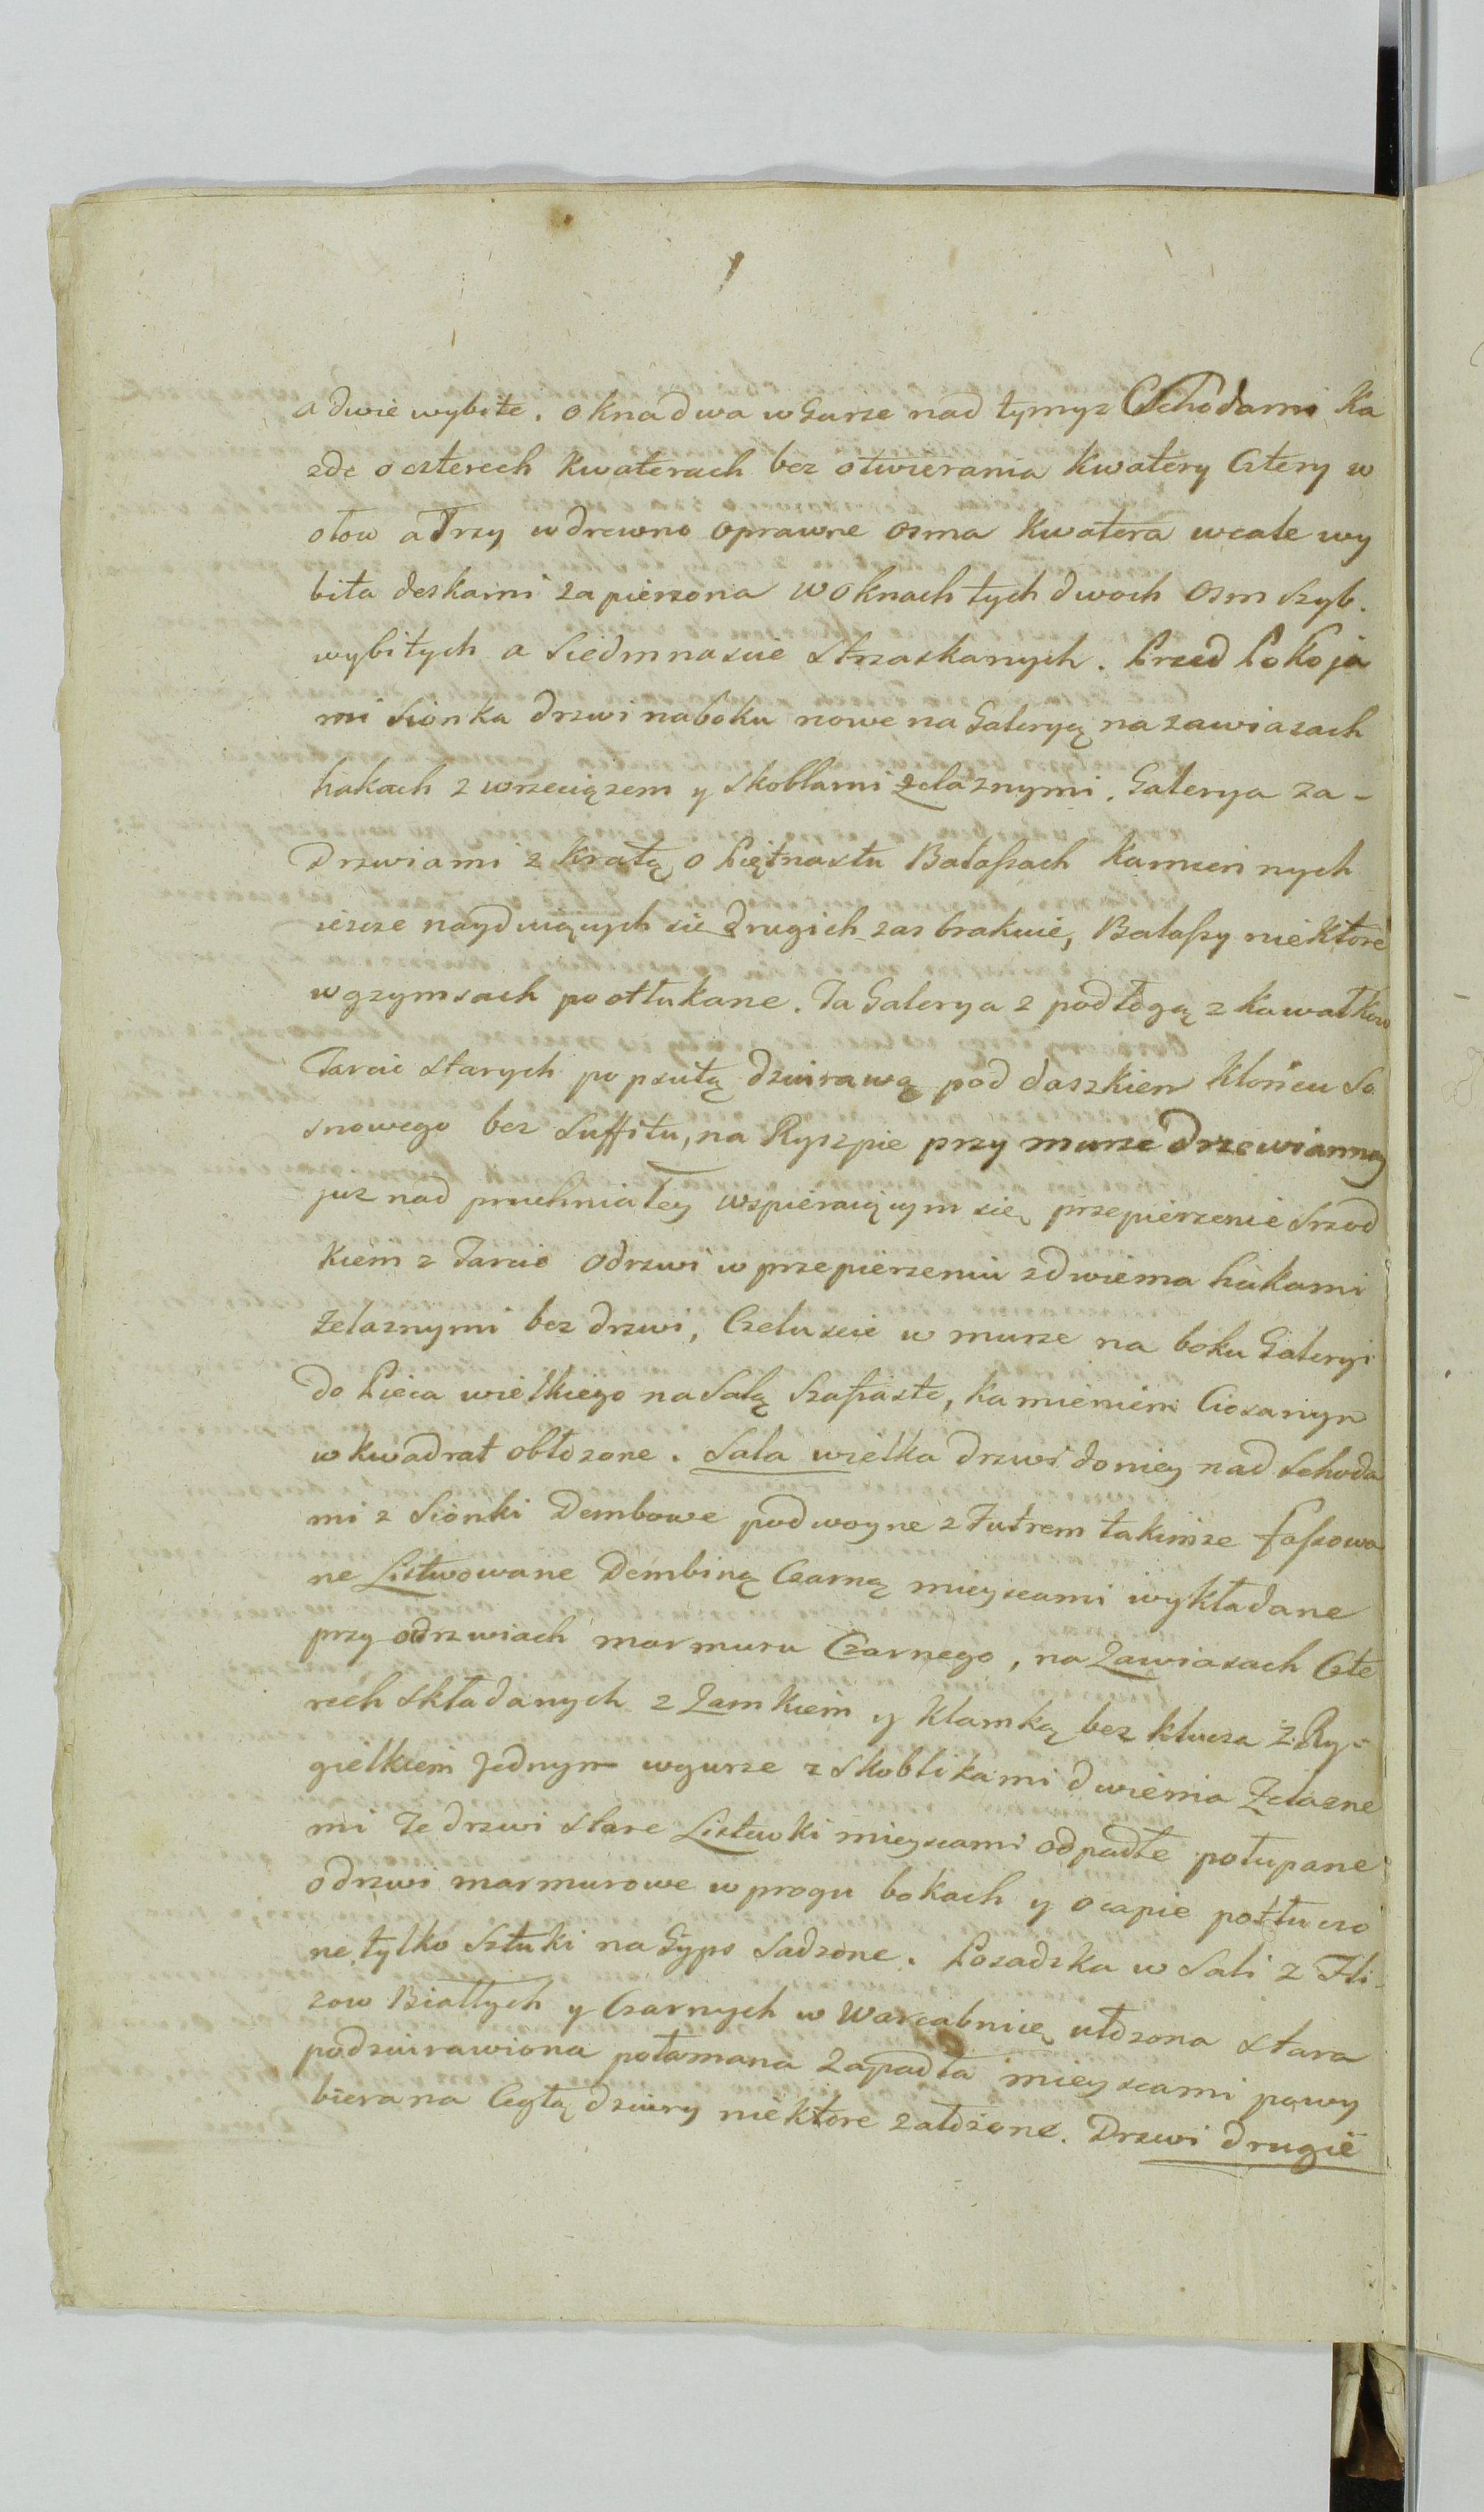 a dwie wybite. okna dwa w Gurze nad tymyz Schodami Ka
zde o czterech Kwaterach bez otwierania Kwatery Cztery w
ołow a Trzy w drewno oprawne osma Kwatera wcale wy
bita deskami zapierzona w oknach tych dwoch osm szyb
wybitych a Siedmnascie strzaskanych. Przed Pokoja
mi Sionka drzwi na boku nowe na Galeryą na zawiasach
hakach z wrzeciązem y skoblami żelaznymi. Galerya za-
Drzwiami z Kratą o Piętnastu Balassach Kamieninych
ieszcze naydUiących sie drugich zas brakuie, Balassy niektore
w gzymsach poottukane. Ta Galerya z podłogą z kawałkow
Tarcic starych popsutą dziurawą pod daszkiem Kłońcu So
snowego bez Suffitu, na Ryszpie przy murze Drzewianney
juz nadpruchniałey wspieraiącym się, przepierzenie Srzod
kiem z Tarcic odrzwi w przepierzeniu z dwiema hakami
Żelaznymi bez drzwi, Czeluscie w murze na boku Galeryi
do Pieca wielkiego na Salą Szafiaste, kamieniem Ciosanym
w kwadrat obłozone. Sala wielka drzwi do niey nad Schoda
mi z Sionki Dembowe podwoyne z Futrem takimze fassowa
ne Listwowane Dembiną Czarną mieyscami wykładane
przy odrzwiach marmuru Czarnego, na Zawiasach Czte
rech składanych z Zamkiem y Klamką bez klucza z Ry-
gielkiem Jednym w gurze z skoblikami dwiema Żelazne
mi Te drzwi stare Listewki mieyscami odpadłe połupane
odrzwi marmurowe w progu bokach y ocapie potłuczo
ne, tylko Sztuki na Gyps Sadzone. Posadzka w Sali z Fli
zow Białłych y Czarnych w Warcabnicę ułozona stara
podziurawiona połamana Zapadła mieyscami powy
bierana Cegłą dziury niektore załozone. Drzwi drugie